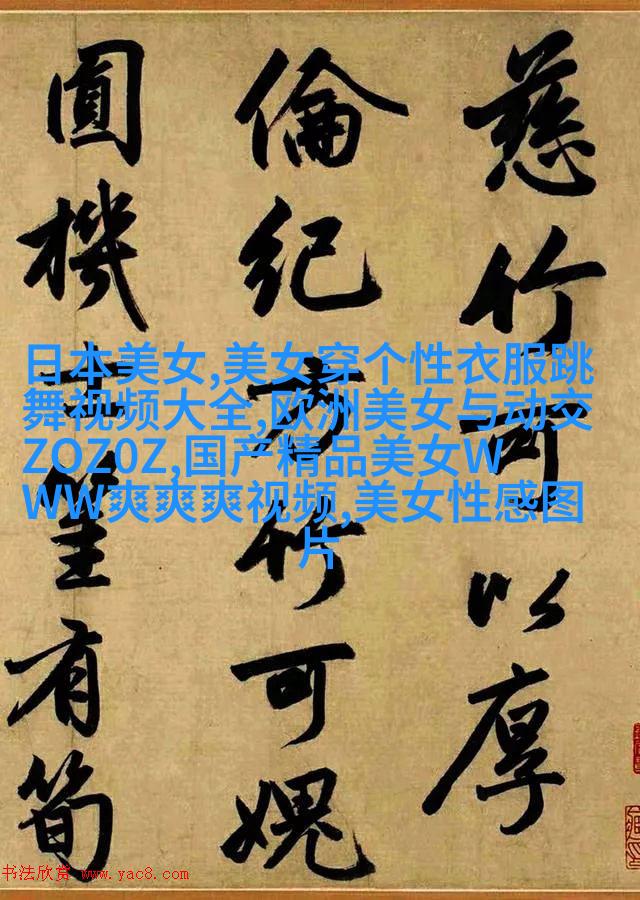 慈竹可以厚
倫紀方竹可媿
圓機有筍
日本美女,美女穿个性衣服跳
舞视频大全,欧洲美女与动交
ZOZ0Z,国产精品美女W
WW爽爽爽视频,美女性感图
片
书法欣赏 www.yac8.com